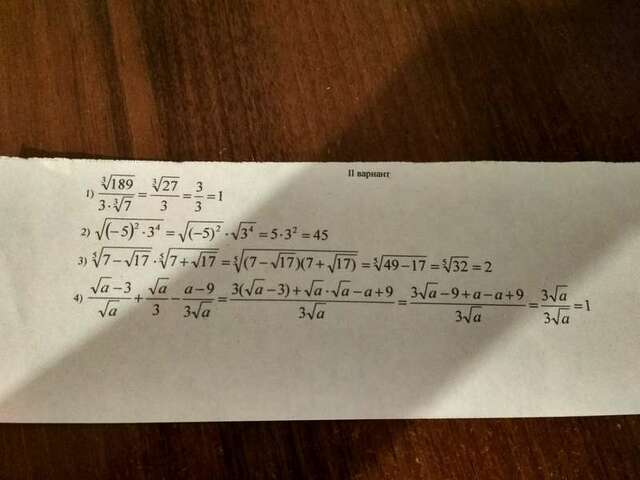 II вариант
1) \frac{\sqrt[3]{189}}{3 \cdot \sqrt[3]{7}} = \frac{\sqrt[3]{27}}{3} = \frac{3}{3} = 1
2) \sqrt{(-5)^2 \cdot 3^4} = \sqrt{(-5)^2} \cdot \sqrt{3^4} = 5 \cdot 3^2 = 45
3) \sqrt[5]{7 - \sqrt{17}} \cdot \sqrt[5]{7 + \sqrt{17}} = \sqrt[5]{(7 - \sqrt{17})(7 + \sqrt{17})} = \sqrt[5]{49 - 17} = \sqrt[5]{32} = 2
4) \frac{\sqrt{a} - 3}{\sqrt{a}} + \frac{\sqrt{a}}{3} - \frac{a - 9}{3\sqrt{a}} = \frac{3(\sqrt{a} - 3) + \sqrt{a} \cdot \sqrt{a} - a + 9}{3\sqrt{a}} = \frac{3\sqrt{a} - 9 + a - a + 9}{3\sqrt{a}} = \frac{3\sqrt{a}}{3\sqrt{a}} = 1